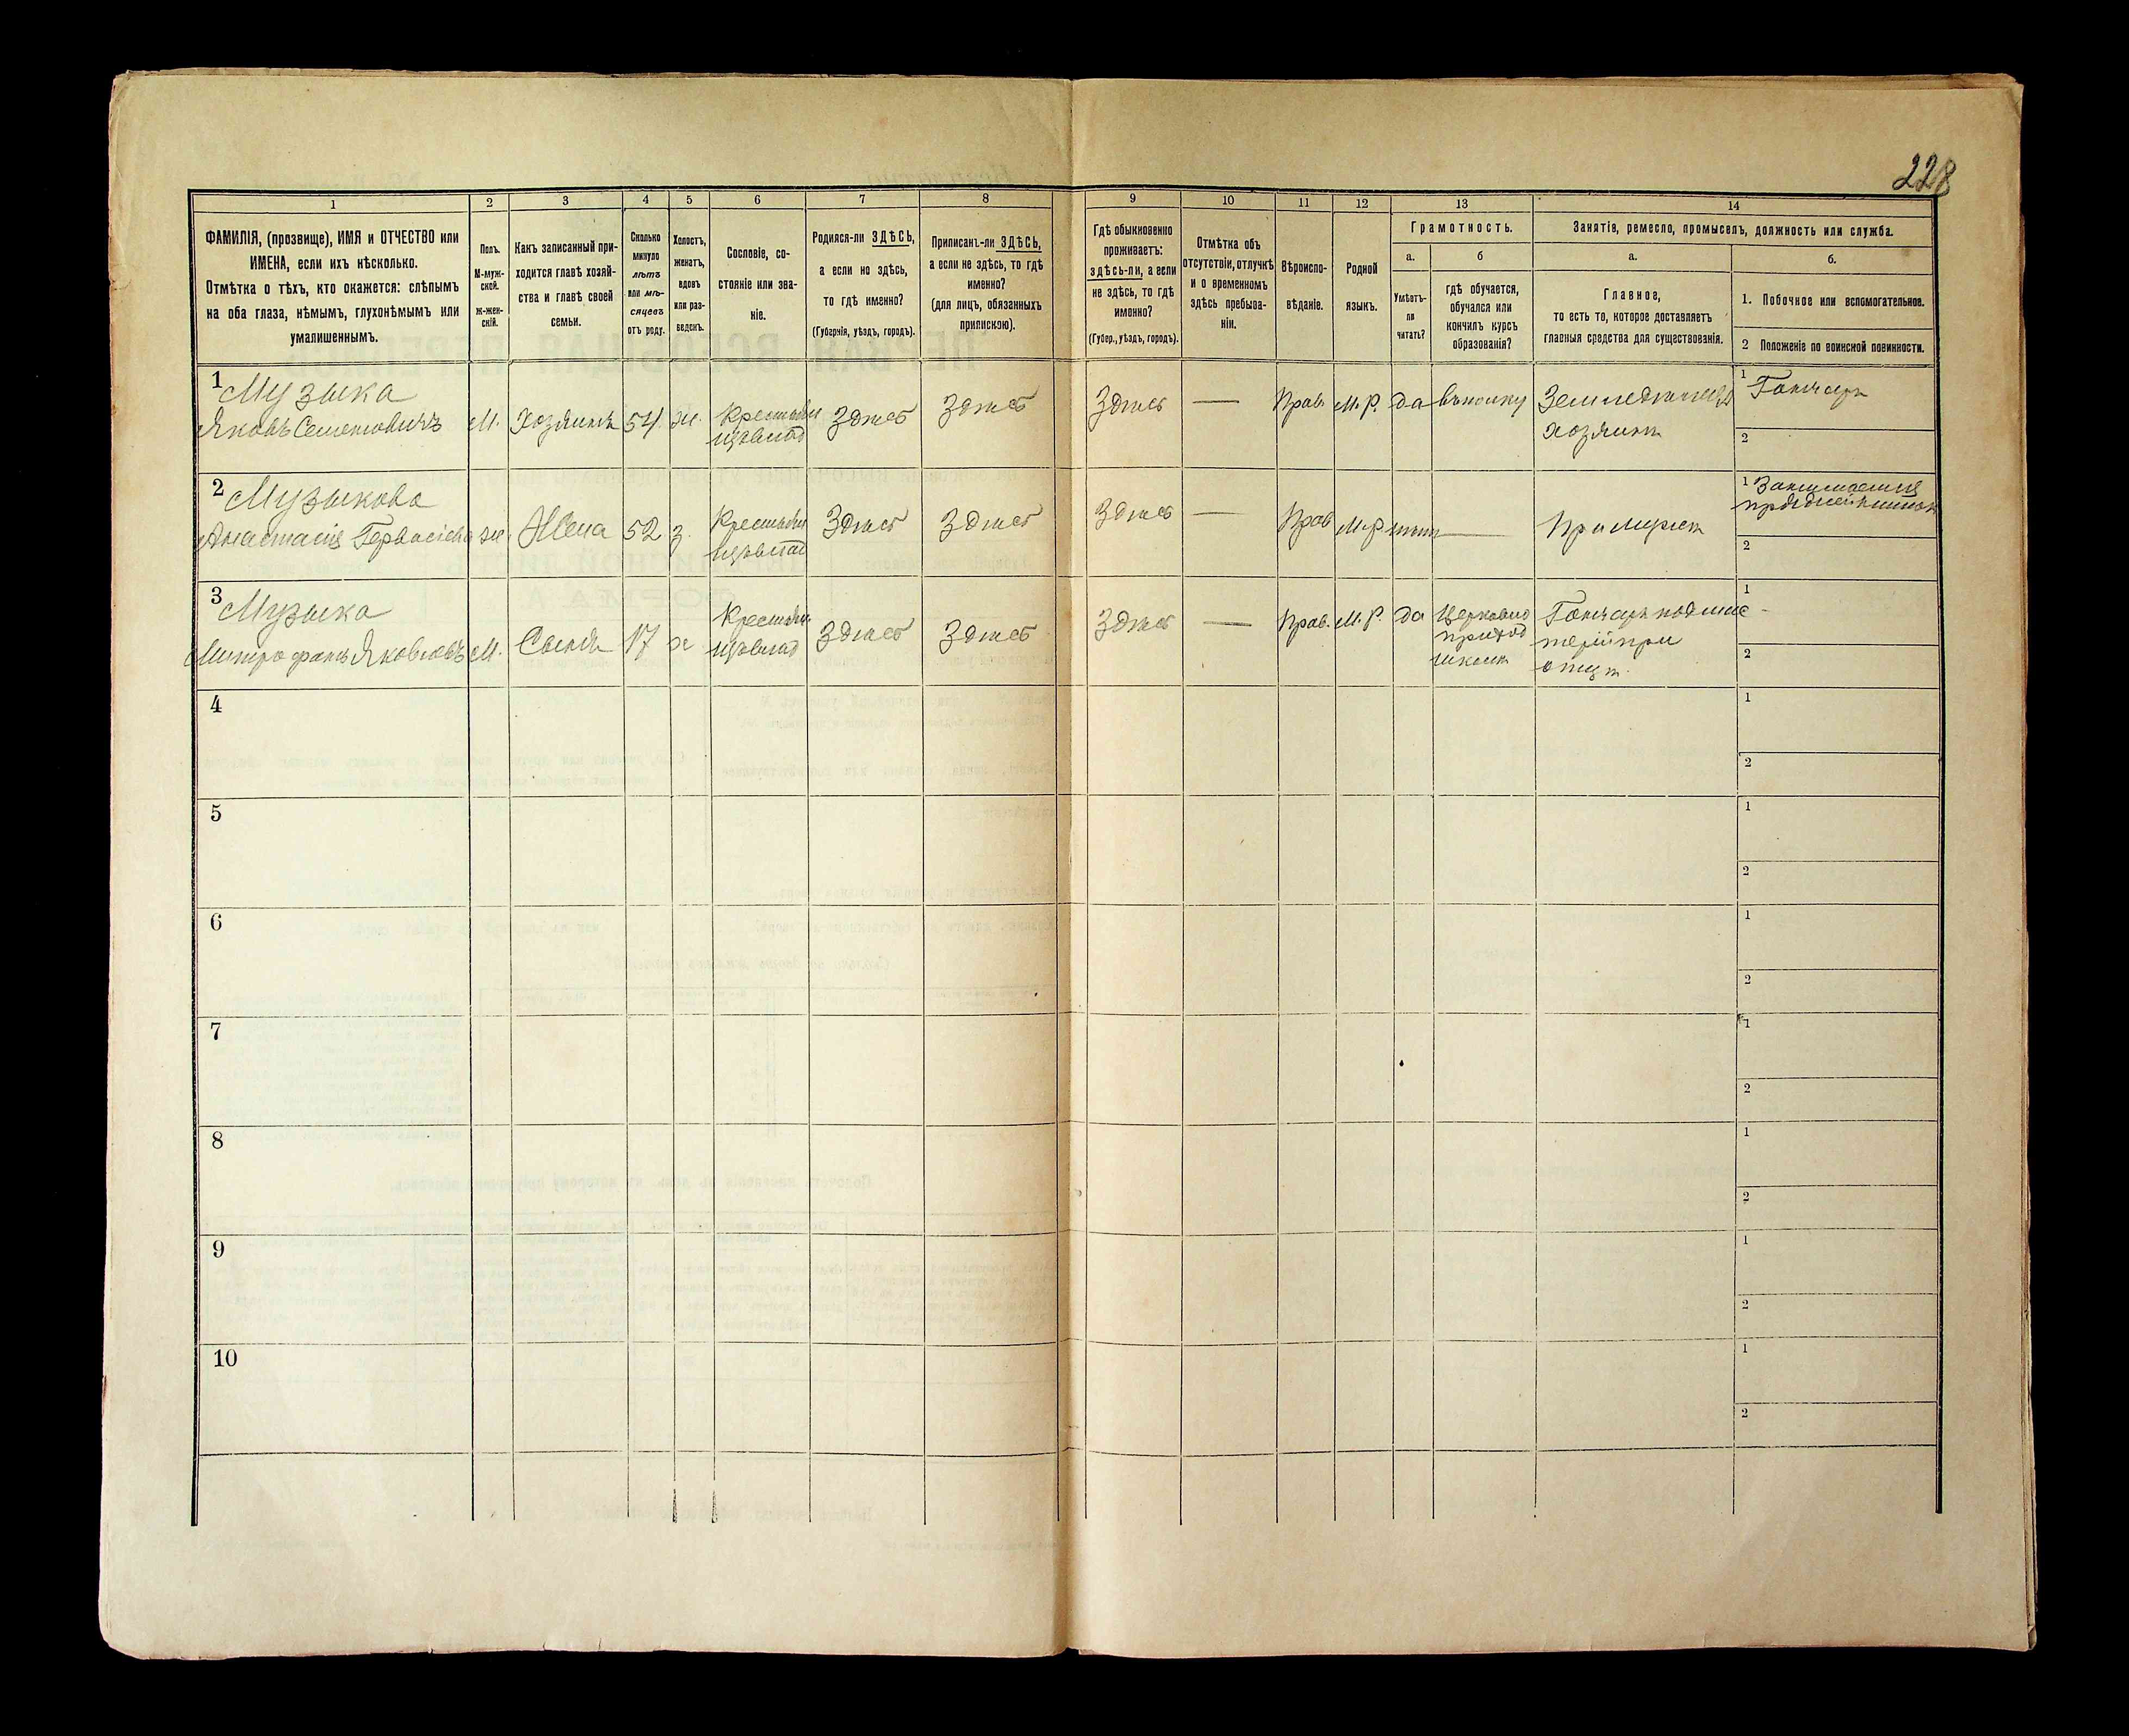 228
1
2
3
4
5
6
7
8
9
10
11
12
13
14
ФАМИЛІЯ, (прозвище), ИМЯ и ОТЧЕСТВО или
ИМЕНА, если ихъ нѣсколько.
Отмѣтка о тѣхъ, кто окажется: слѣпымъ
на оба глаза, нѣмымъ, глухонѣмымъ или
умалишеннымъ.
Полъ.
М-муж-
ской.
ж-жен-
скій.
Какъ записанный при-
ходится главѣ хозяй-
ства и главѣ своей
семьи.
Сколько
минуло
лѣтъ
или мѣ-
сяцевъ
отъ роду.
Холостъ,
женатъ,
вдовъ
или раз-
веденъ.
Сословіе, со-
стояніе или зва-
ніе.
Родился-ли ЗДѢСЬ,
а если не здѣсь,
то гдѣ именно?
(Губернія, уѣздъ, городъ).
Приписанъ-ли ЗДѢСЬ,
а если не здѣсь, то гдѣ
именно?
(для лицъ, обязанныхъ
припискою).
Гдѣ обыкновенно
проживаетъ:
здѣсь-ли, а если
не здѣсь, то гдѣ
именно?
(Губер., уѣздъ, городъ).
Отмѣтка объ
отсутствіи, отлучкѣ
и о временномъ
здѣсь пребыва-
ніи.
Вѣроиспо-
вѣданіе.
Родной
языкъ.
Грамотность.
а.
Умѣетъ-
ли
читать?
б
гдѣ обучается,
обучался или
кончилъ курсъ
образованія?
Занятіе, ремесло, промыселъ, должность или служба.
а.
Главное,
то есть то, которое доставляетъ
главныя средства для существованія.
б.
1. Побочное или вспомогательное.
2 Положеніе по воинской повинности.
1 Музыка
Яковъ Семеновичъ
М.
Хозяинъ
54
ж.
Крестьян
из влад
Здѣсь
Здѣсь
Здѣсь
—
Прав.
М.Р.
да
въ полку
Земледѣлецъ
хозяинъ
1 Гончаръ
2
2 Музыкова
Анастасія Гервасіева
ж.
Жена
52
з.
Крестьян
из влад
Здѣсь
Здѣсь
Здѣсь
Прав
М.Р
нѣтъ
—
При мужѣ
1 Занимается
2
3 Музыка
Митрофанъ Яковлевъ
М.
Сынъ
17
х
Крестьян
из влад
Здѣсь
Здѣсь
Здѣсь
—
Прав.
М.Р.
да
Церковно
приход
школѣ
Гончаръ подмас
терій при
отцѣ.
1 -
2
4
1
2
5
1
2
6
1
2
7
1
2
8
1
2
9
1
2
10
1
2